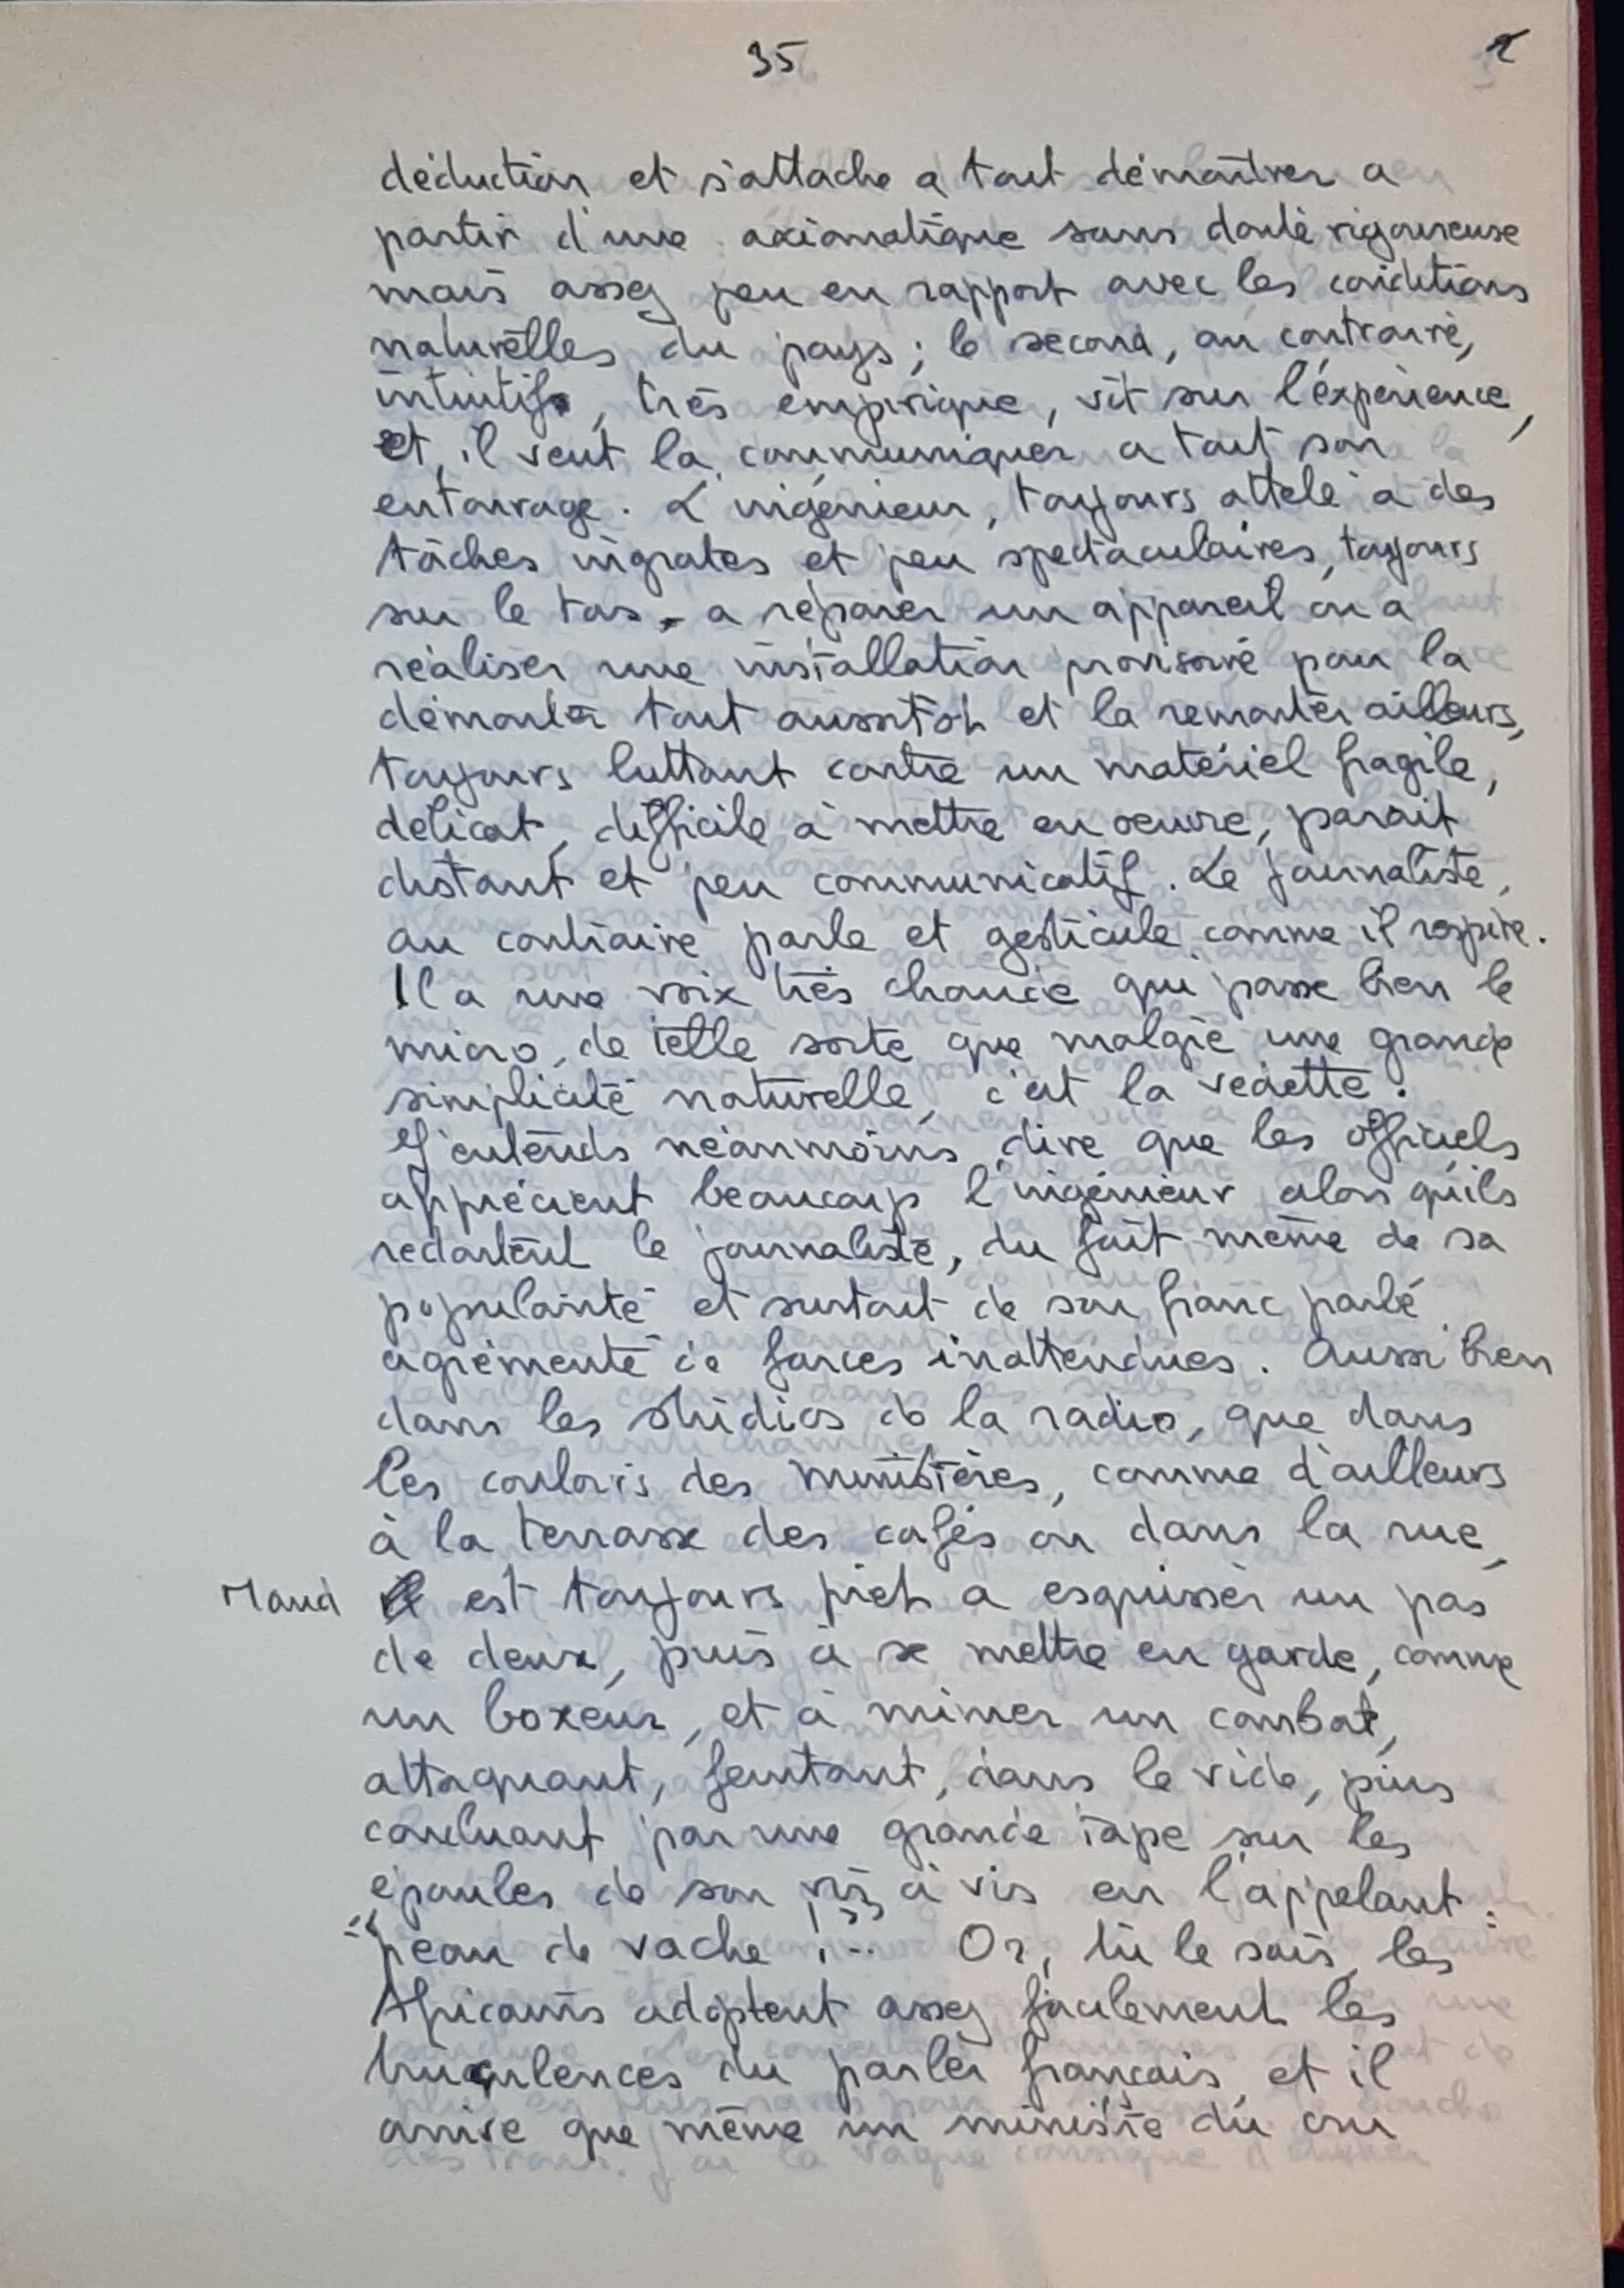 35
2
déduction et s'attache à tout démontrer à
partir d'une axiomatique sans doute rigoureuse
mais assez peu en rapport avec les conditions
naturelles du pays ; le second, au contraire,
intuitif, très empirique, vit sur l'expérience,
et, il veut la communiquer à tout son
entourage. L'ingénieur, toujours attelé à des
tâches ingrates et peu spectaculaires, toujours
sur le tas, à réparer un appareil ou à
réaliser une installation provisoire pour la
démonter tout aussitôt et la remonter ailleurs,
toujours luttant contre un matériel fragile,
délicat, difficile à mettre en oeuvre, parait
distant et peu communicatif. Le journaliste,
au contraire parle et gesticule comme il respire.
Il a une voix très chaude qui passe bien le
micro, de telle sorte que malgré une grande
simplicité naturelle, c'est la vedette.
J'entends néanmoins dire que les officiels
apprécient beaucoup l'ingénieur alors qu'ils
redoutent le journaliste, du fait même de sa
popularité et surtout de son franc parlé
agrémenté de farces inattendues. Aussi bien
dans les studios de la radio, que dans
les couloirs des ministères, comme d'ailleurs
à la terrasse des cafés ou dans la rue,
Maud il est toujours prêt à esquisser un pas
de deux, puis à se mettre en garde, comme
un boxeur, et à mimer un combat,
attaquant, feintant, dans le vide, puis
concluant par une grande tape sur les
épaules de son vis à vis en l'appelant :
"peau de vache !... Or, tu le sais, les
Africains adoptent assez facilement les
truculences du parler français, et il
arrive que même un ministre du cru